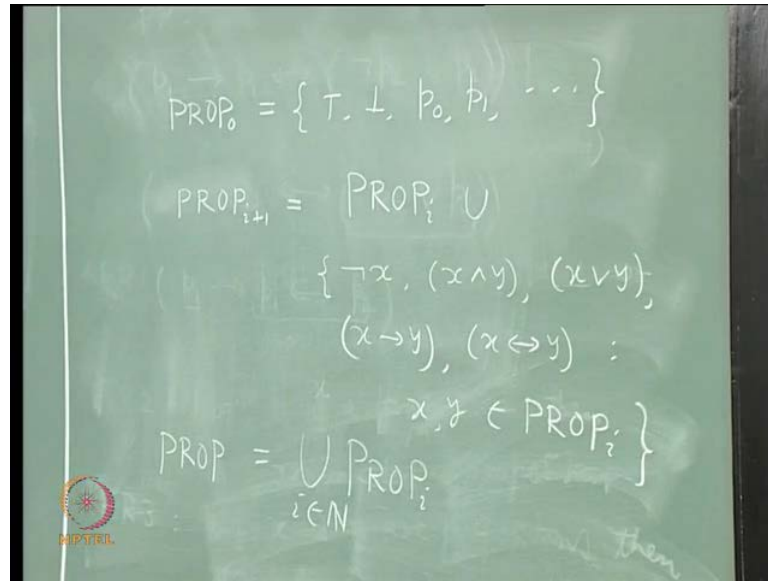 PROP₀ = { ⊤, ⊥, p₀, p₁, ···· }
PROPᵢ₊₁ = PROPᵢ ∪
{ ¬x, (x∧y), (x∨y),
(x→y), (x↔y) :
x, y ∈ PROPᵢ }
PROP = ⋃ PROPᵢ
i∈N
NPTEL
then